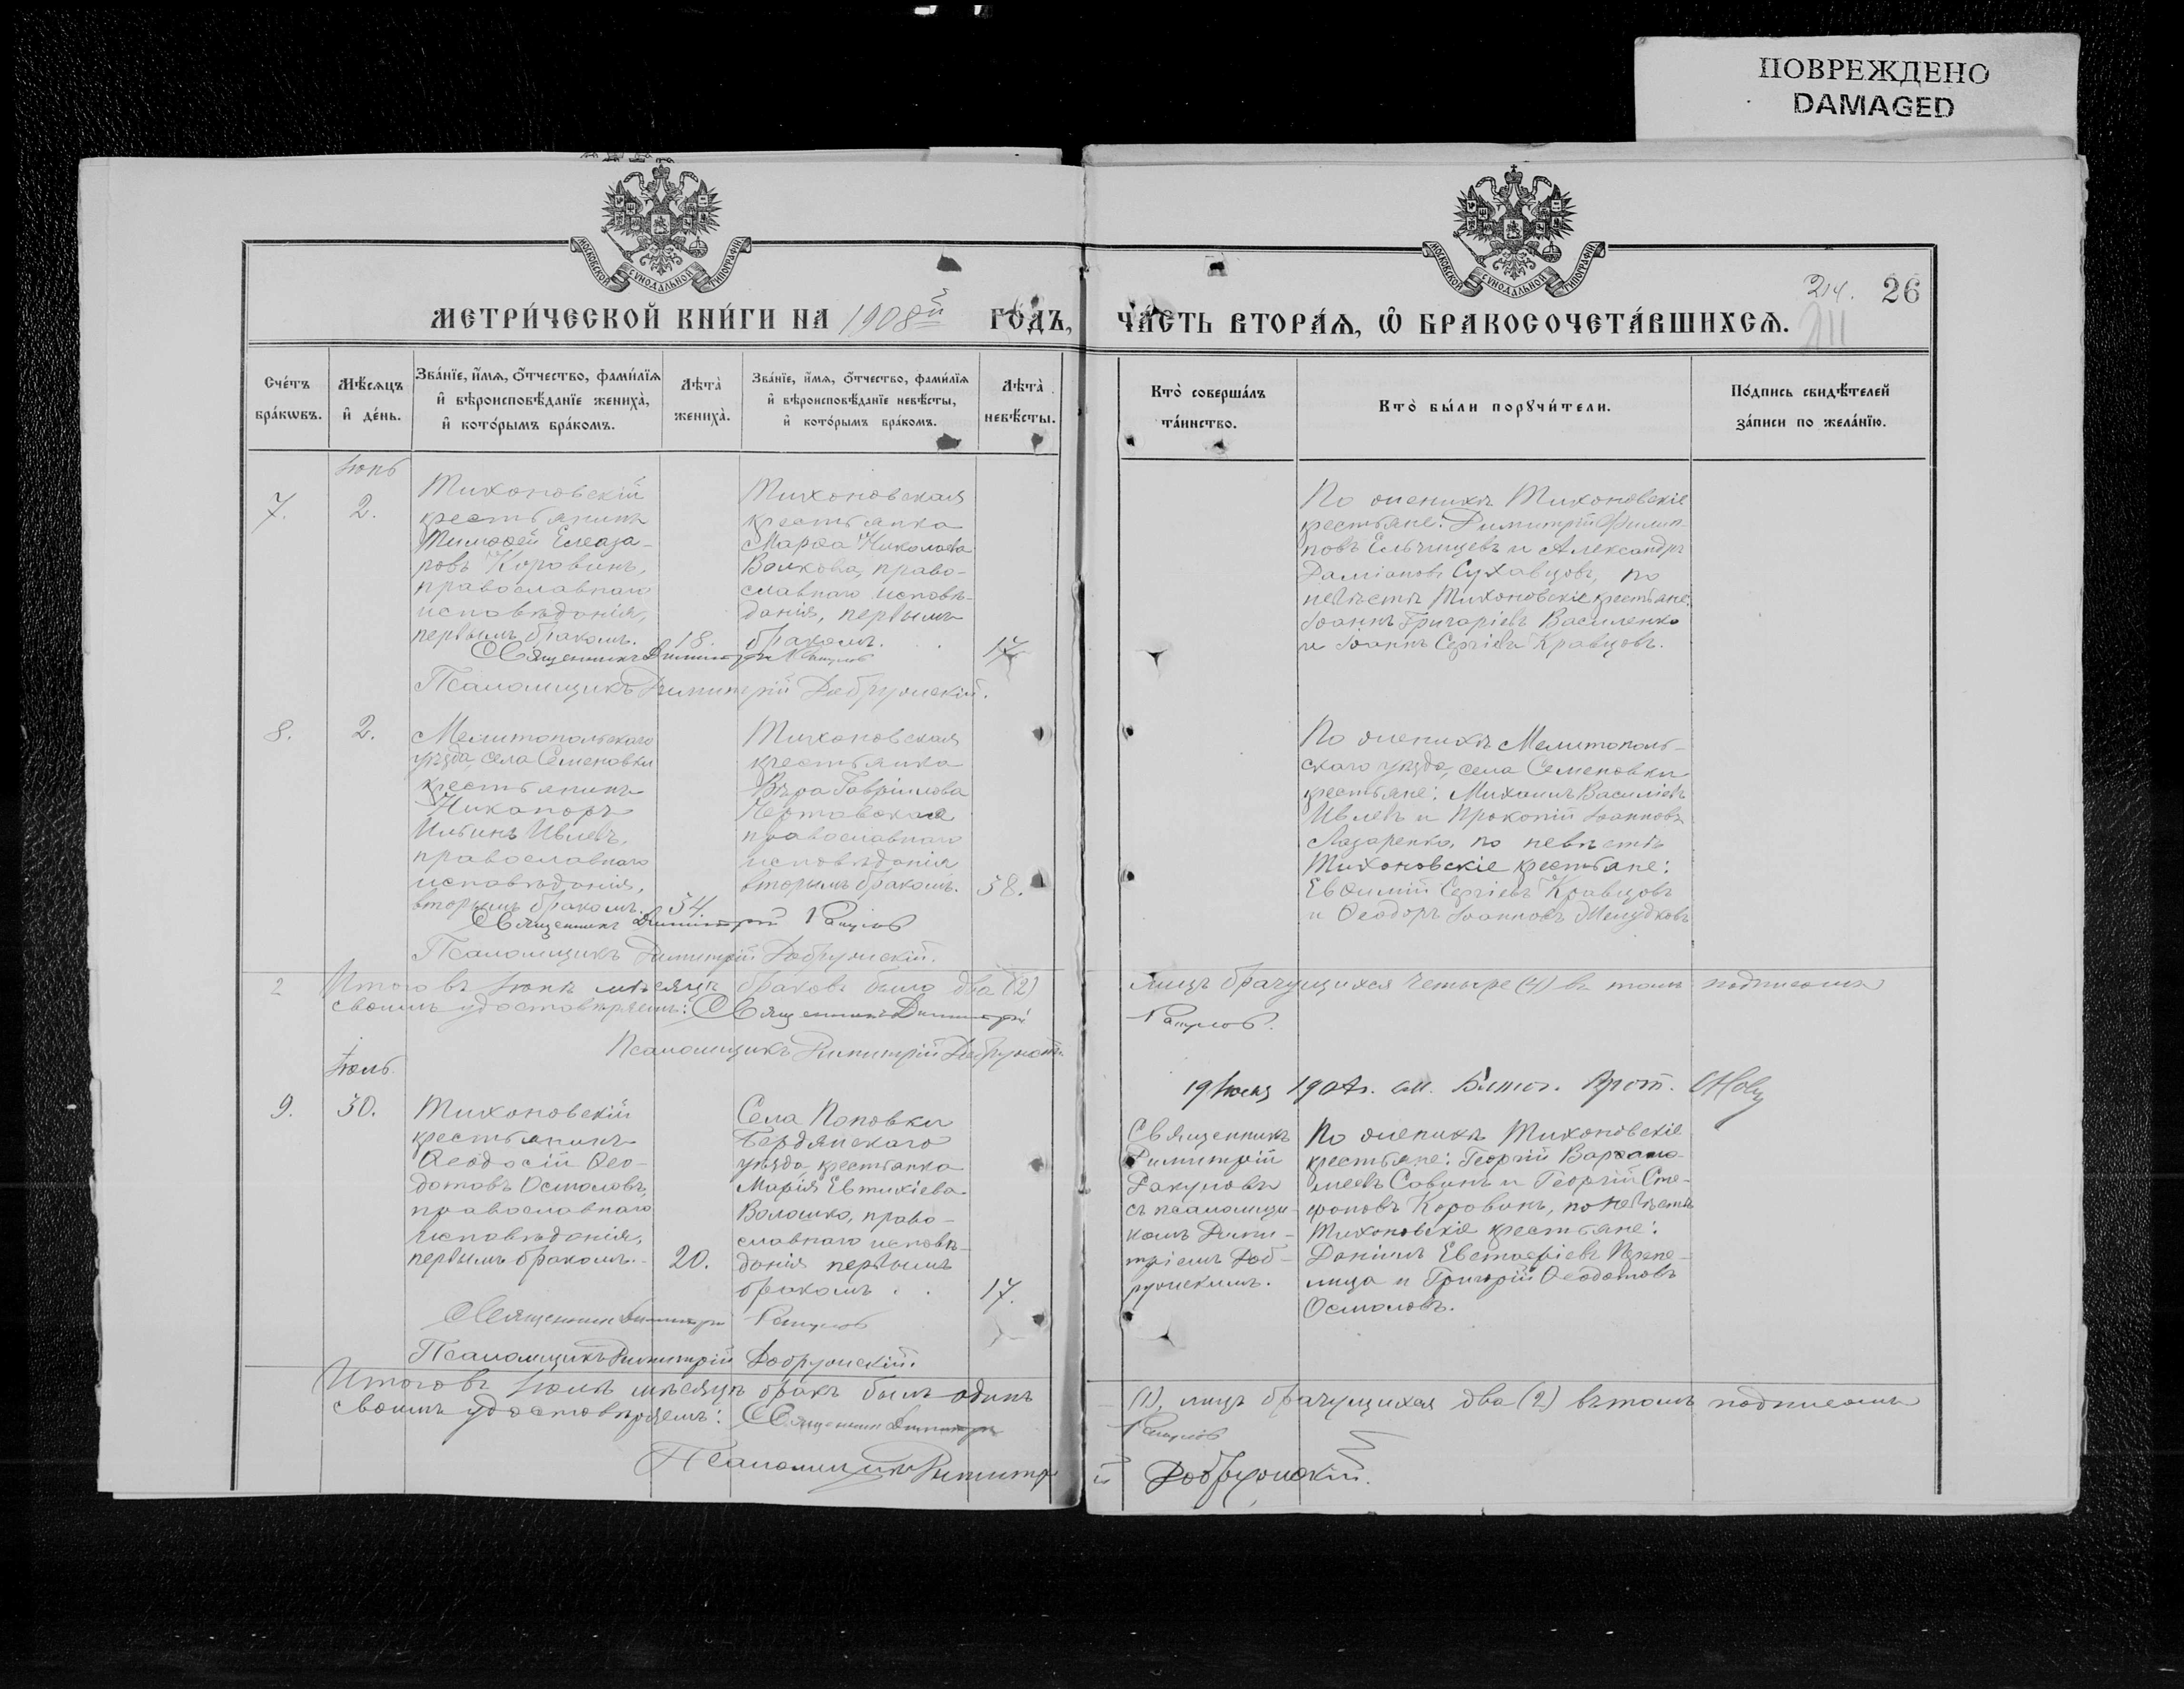 ПОВРЕЖДЕНО
DAMAGED
МОСКОВСКОЙ СѴНОДАЛЬНОЙ ТИПОГРАФІИ
МОСКОВСКОЙ СѴНОДАЛЬНОЙ ТИПОГРАФІИ
214. 26
МЕТРИ́ЧЕСКОЙ КНИ́ГИ НА 1908й ГО́ДЪ,
ЧА́СТЬ ВТОРА́Я, Ѡ БРАКОСОЧЕТА́ВШИХСЯ.
Сче́тъ
бра́кωвъ.
Мѣ́сяцъ
и҆ де́нь.
Зва́нїе, и҆́мѧ, ѻ҆́тчество, фами́лїѧ
и҆ вѣроисповѣ́данїе жениха̀,
и҆ кото́рымъ бра́комъ.
Лѣта̀
жениха̀.
Зва́нїе, и҆́мѧ, ѻ҆́тчество, фами́лїѧ
и҆ вѣроисповѣ́данїе невѣ́сты,
и҆ кото́рымъ бра́комъ.
Лѣта̀
невѣ́сты.
Кто̀ соверша́лъ
та́инство.
Кто̀ бы́ли порꙋчи́тели.
По́дпись свидѣ́телей
за́писи по жела́нїю.
Іюнь
7.
2.
Тихоновскій
крестьянинъ
Тимоѳей Елеаза-
ровъ Коровинъ,
православнаго
исповѣданія,
первымъ бракомъ.
18.
Тихоновская
крестьянка
Марѳа Николаева
Волкова, право-
славнаго исповѣ-
данія, первымъ
бракомъ.
17
Священникъ Димитрій
Псаломщикъ Димитрій
По жениху Тихоновскіе
крестьяне: Димитрій Филип-
повъ Ельчищевъ и Александръ
Даміановъ Сухавцовъ, по
невѣстѣ Тихоновскіе крестьяне:
Іоаннъ Григоріевъ Василенко
и Іоаннъ Сергіевъ Кравцовъ.
8.
2.
Мелитопольскаго
уѣзда, села Семеновки
крестьянинъ
Никаноръ
Ильинъ Ивлевъ,
православнаго
исповѣданія,
вторымъ бракомъ.
54.
Тихоновская
крестьянка
Вѣра Гавріилова
православнаго
исповѣданія
вторымъ бракомъ.
58.
Священникъ Димитрій
Псаломщикъ Димитрій
По жениху Мелитополь-
скаго уѣзда, села Семеновки
крестьяне: Михаилъ Василіевъ
Ивлевъ и Прокопій Іоанновъ
Лазаренко, по невѣстѣ
Тихоновскіе крестьяне:
Евѳимій Сергіевъ Кравцовъ
и Ѳеодоръ Іоанновъ
2 Итого въ Іюнѣ мѣсяцѣ браковъ было два (2)
лицъ брачущихся четыре (4) въ томъ подписомъ
своимъ удостовѣряемъ: Священникъ Димитрій
Псаломщикъ Димитрій
19 Іюля
Іюль
9.
30.
Тихоновскій
крестьянинъ
Ѳеодосій Ѳео-
дотовъ Осмоловъ,
православнаго
исповѣданія,
первымъ бракомъ.
20.
Села Поповки
Бердянскаго
уѣзда, крестьянка
Марія Евтихіева
Волошко, право-
славнаго исповѣ-
данія первымъ
бракомъ
17.
Священникъ
Димитрій
съ псаломщи-
комъ Дими-
тріемъ
По жениху Тихоновскіе
крестьяне: Георгій Варѳоло-
меевъ Савинъ и Георгій Сте-
фановъ Коровинъ, по невѣстѣ
Тихоновскіе крестьяне:
Даніилъ Евстафіевъ Перепе-
лица и Григорій Ѳеодотовъ
Осмоловъ.
Священникъ Димитрій
Псаломщикъ Димитрій
Итого въ Іюлѣ мѣсяцѣ бракъ былъ одинъ
(1), лицъ брачущихся два (2) въ томъ подписомъ
своимъ удостовѣряемъ: Священникъ Димитрій
Псаломщикъ Димитрій